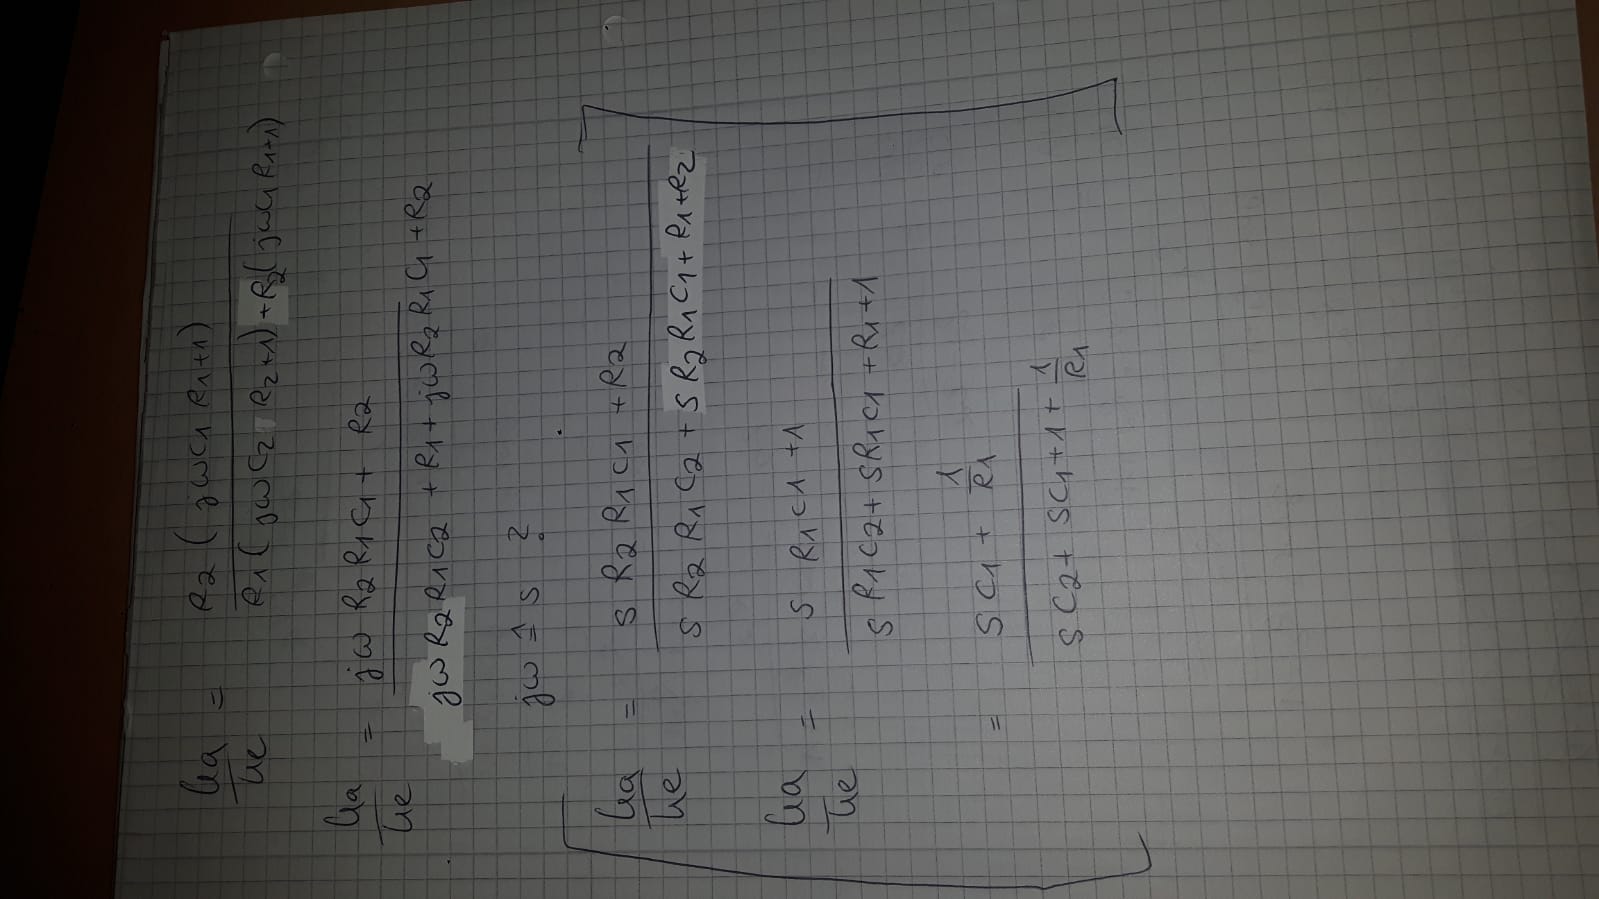 Ua/Ue = R2 (jωC1 R1+1) / R1 (jωC2 R2+1) +R2 (jωC1 R1+1)
Ua/Ue = jω R2 R1 C1 + R2 / jω R2 R1 C2 + R1 + jω R2 R1 C1 + R2
jω ≙ s ?
Ua/Ue = S R2 R1 C1 + R2 / S R2 R1 C2 + S R2 R1 C1 + R1 + R2
Ua/Ue = S R1 C1 + 1 / S R1 C2 + S R1 C1 + R1 + 1
= S C1 + 1/R1 / S C2 + S C1 + 1 + 1/R1